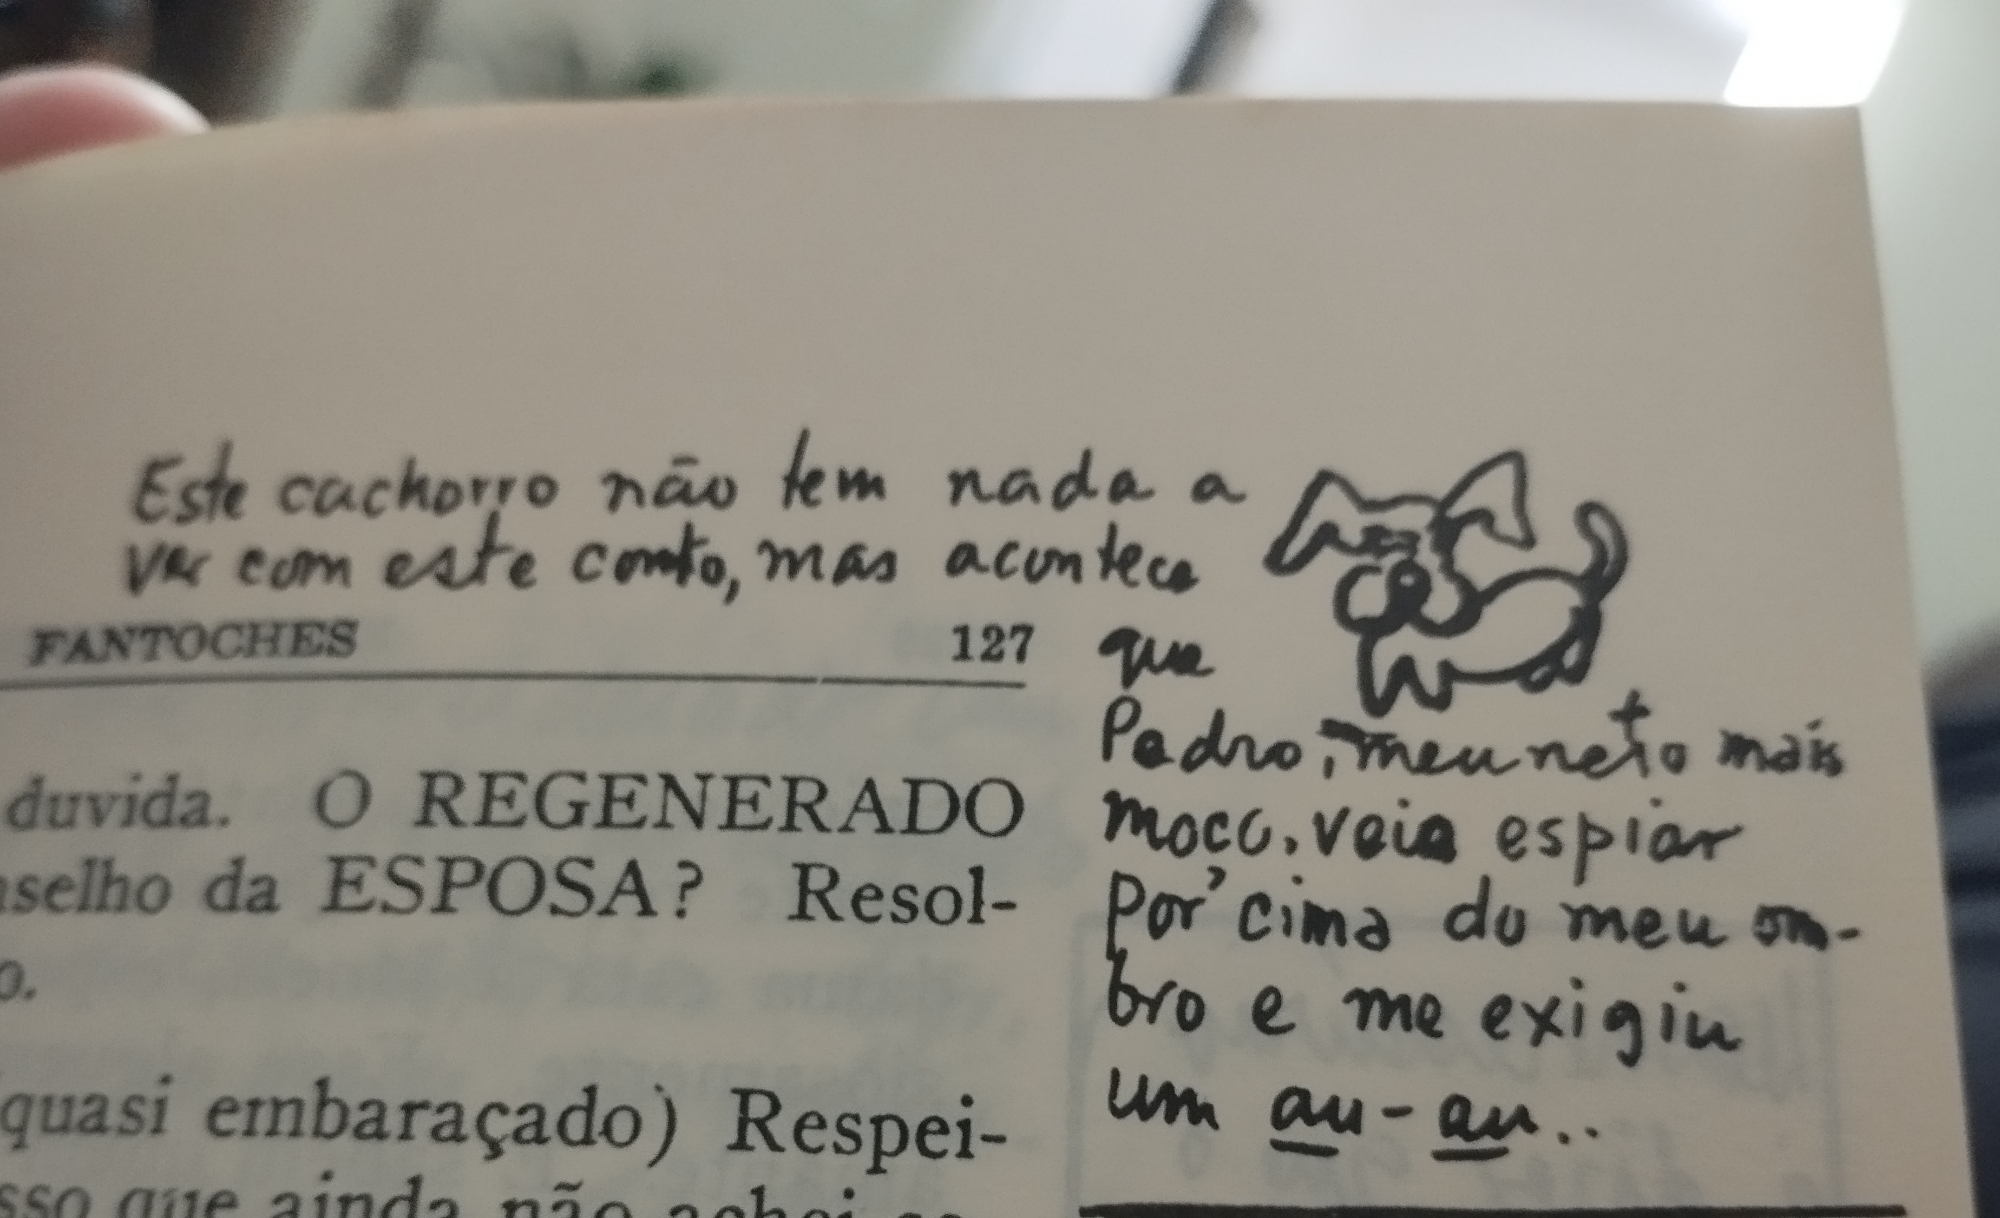 Este cachorro não tem nada a
ver com este conto, mas acontece
FANTOCHES 127 que
Pedro, meu neto mais
moço, veio espiar
por'cima do meu om-
bro e me exigiu
um au-au..
duvida. O REGENERADO
nselho da ESPOSA? Resol-
o.
(quasi embaraçado) Respei-
sso que ainda não achei